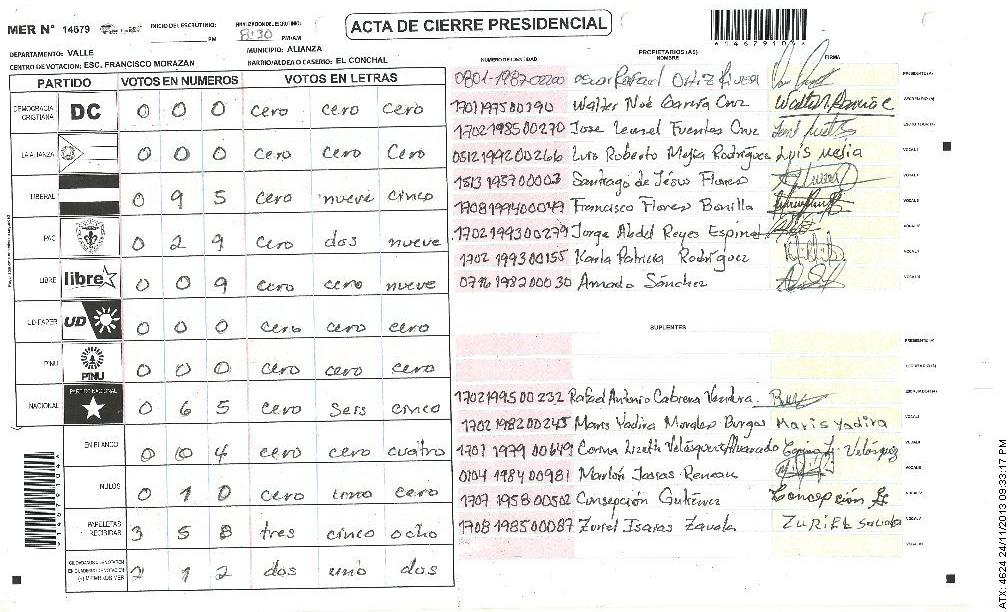 MER N° 14679
INICIO DEL ESCRUTINIO:
PM
8:30 PM/AM
ACTA DE CIERRE PRESIDENCIAL
*1467910*
DEPARTAMENTO: VALLE
MUNICIPIO: ALIANZA
CENTRO DE VOTACION: ESC. FRANCISCO MORAZAN
BARRIO/ALDEA O CASERIO: EL CONCHAL
PARTIDO VOTOS EN NUMEROS VOTOS EN LETRAS
DEMOCRACIA CRISTIANA DC 0 0 0 cero cero cero
LA ALIANZA 0 0 0 cero cero cero
LIBERAL 0 9 5 cero nueve cinco
PAC 0 2 9 cero dos nueve
LIBRE libre 0 0 9 cero cero nueve
UD-FAPER UD 0 0 0 cero cero cero
PINU PINU 0 0 0 cero cero cero
NACIONAL PARTIDO NACIONAL 0 6 5 cero seis cinco
EN BLANCO 0 0 4 cero cero cuatro
NULOS 0 1 0 cero uno cero
PAPELETAS RECIBIDAS 3 5 8 tres cinco ocho
2 1 2 dos uno dos
PROPIETARIOS (AS)
NUMERO DE IDENTIDAD NOMBRE FIRMA
Oscar Rafael Ortiz Rivera PRESIDENTE(A)
1701197500190 Walter Noé García Cruz SECRETARIO (A)
1702198500270 Jose Fuentes Cruz ESCRUTADOR (A)
0512199200266 Luis Roberto Mejia Rodríguez Luis Mejia VOCAL I
1513195700003 Santiago de Jesús Flores
1708199400049 Francisco Flores Bonilla
1702199300279 Jorge Abdel Reyes Espinal
1702199300155 Karla Patricia Rodríguez
Amado Sánchez
SUPLENTES
PRESIDENTE (A)
SECRETARIO (A)
1702199500232 Rafael Antonio Cabrera ESCRUTADOR (A)
1702198200245 Maris Yadira Morales Burgos Maris Yadira
1701197900649 Corina Lizeth Velásquez Alvarado
0104198400981 Marlón
1707195800502 Consepción Gutiérrez Concepción
1708198500087 Zuriel Isaias Zavala ZURIEL
*1467910*
ATX: 4624 24/11/2013 09:33:17 PM